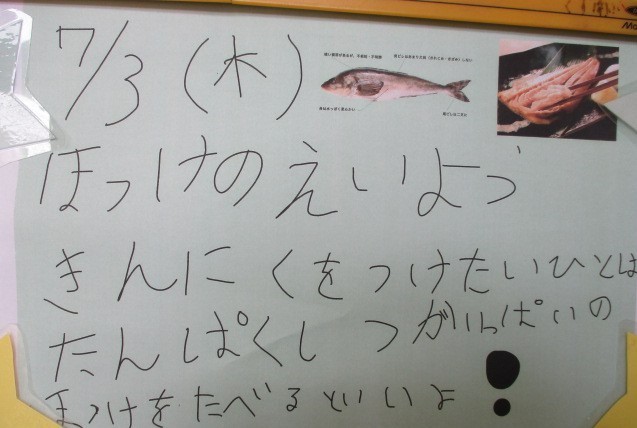 7/3(木)
ほっけのえいよう
きんにくをつけたいひとは
たんぱくしつがいっぱいの
ほっけをたべるといいよ!